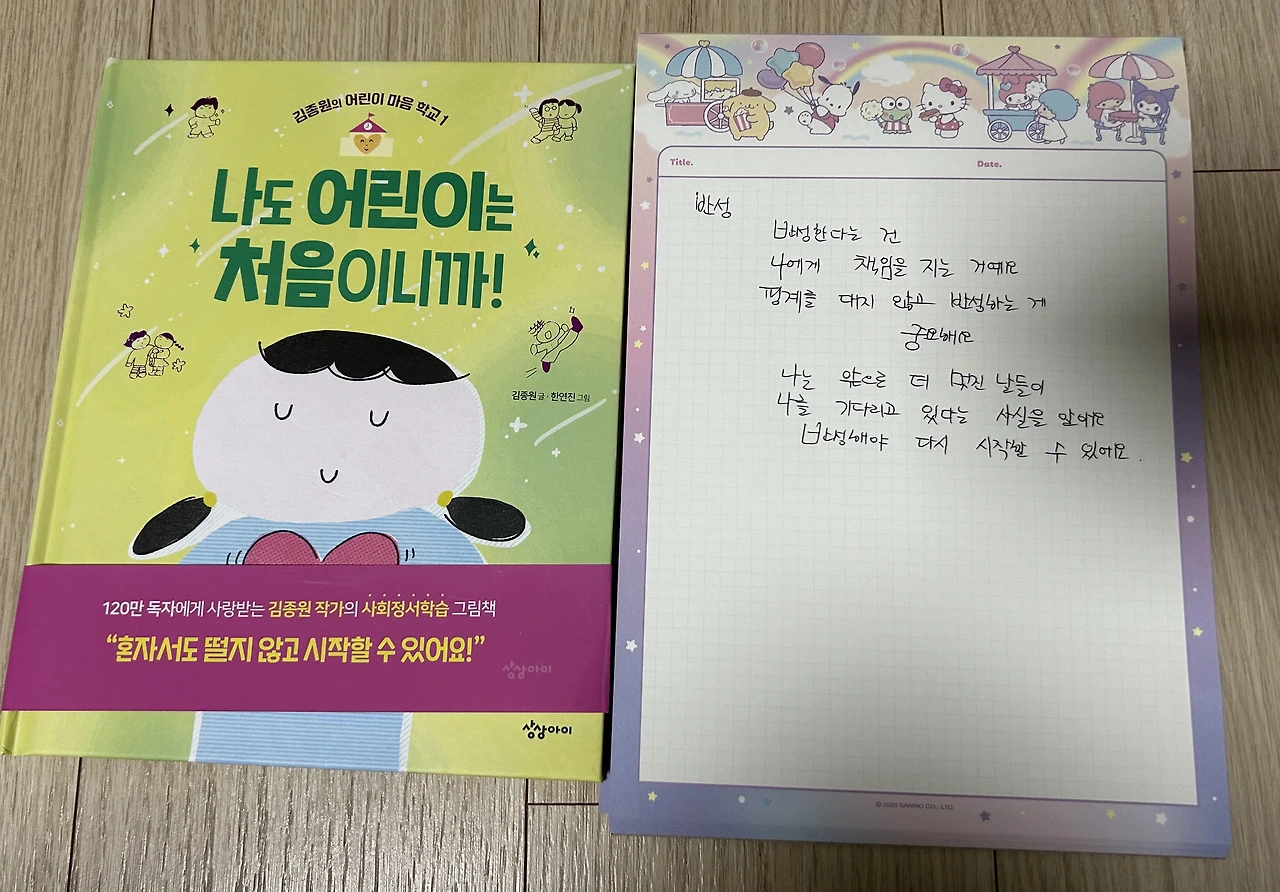 김종원의 어린이 마음 학교 1
나도 어린이는
처음이니까!
김종원 글 · 한연진 그림
120만 독자에게 사랑받는 김종원 작가의 사회정서학습 그림책
“혼자서도 떨지 않고 시작할 수 있어요!”
상상아이
상상아이
Title. Date.
반성
반성한다는 건
나에게 책임을 지는 거예요
핑계를 대지 않고 반성하는 게
중요해요
나는 앞으로 더 멋진 날들이
나를 기다리고 있다는 사실을 알아요
반성해야 다시 시작할 수 있어요.
© 2023 SANRIO CO., LTD.